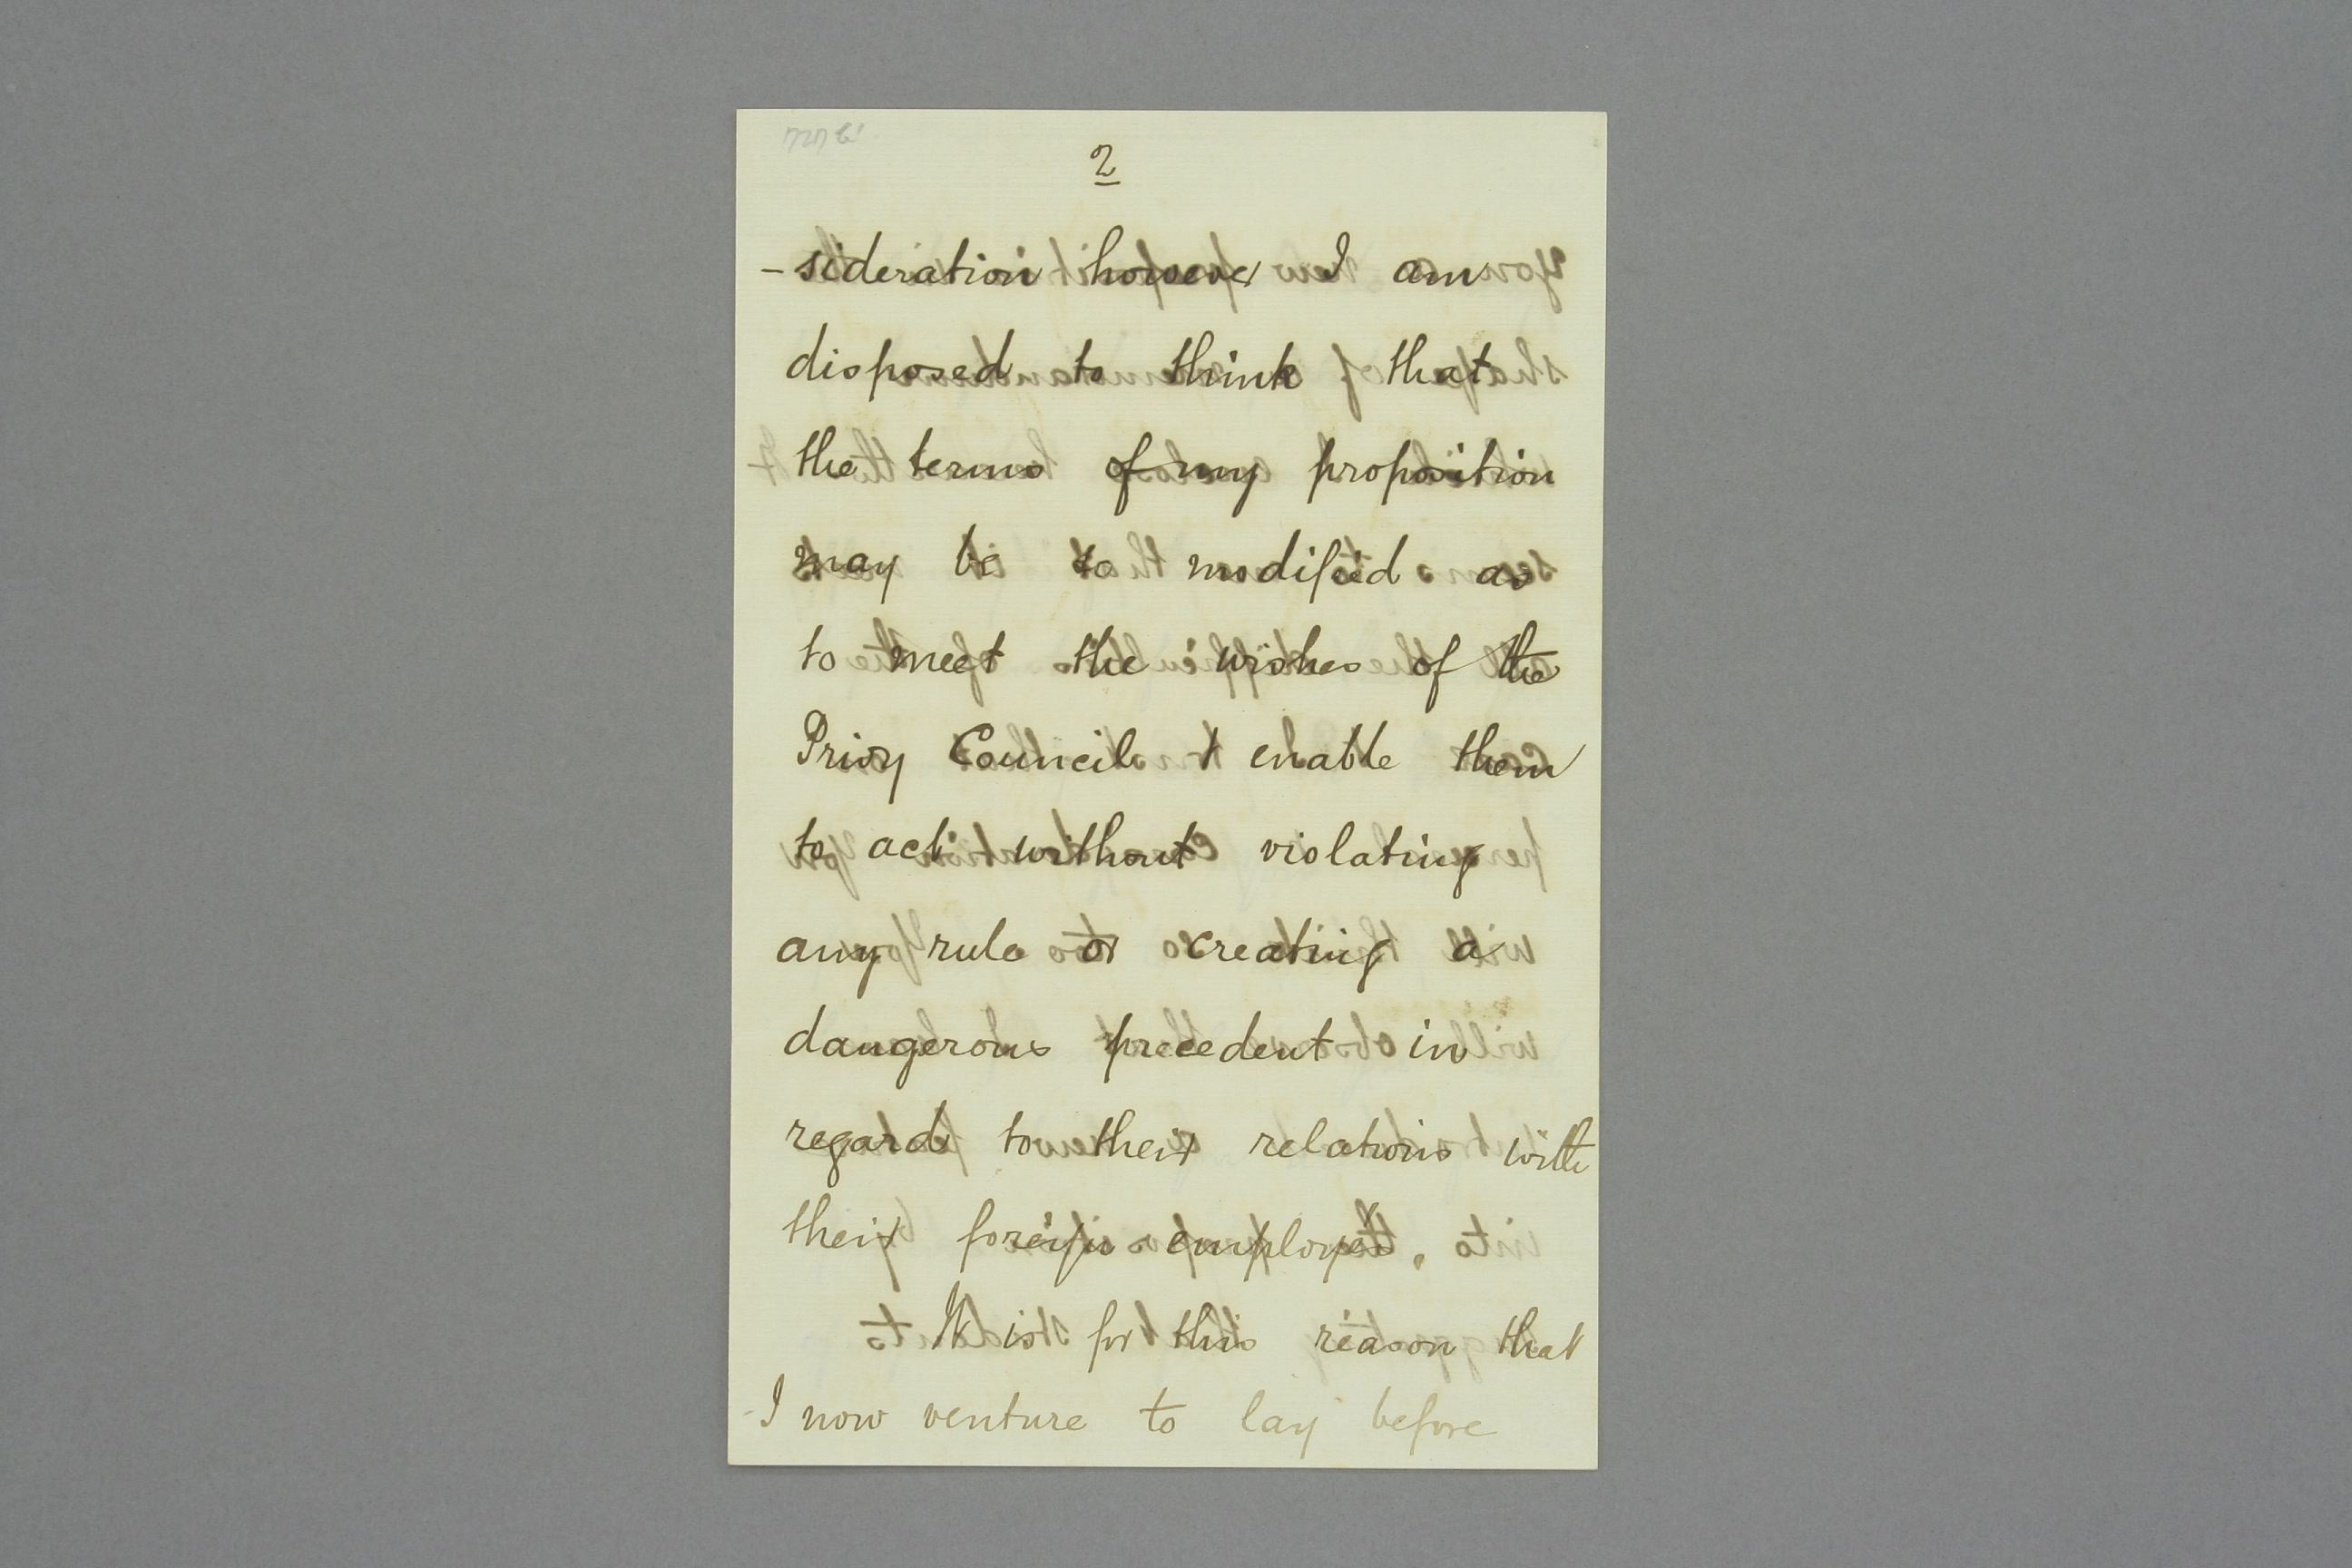 2
-sideration however I am
disposed to think that
the terms of my proposition
may be so modified as
to meet the wishes of the
Privy Council & enable them
to act without violating
any rule or creating a
dangerous precedent in
regard to their relations with
their foreign employés.
It is for this reason that
I now venture to lay before